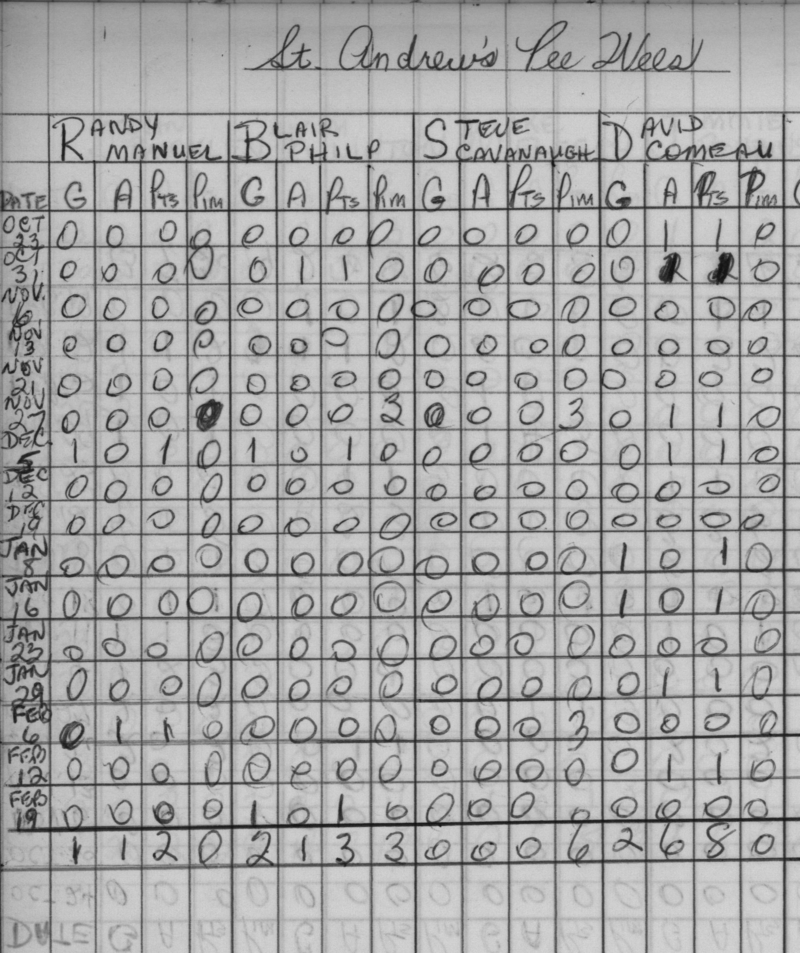 St. Andrew's Pee Wees
RANDY MANUEL BLAIR PHILP STEVE CAVANAUGH DAVID COMEAU
DATE G A PTS PIM G A PTS PIM G A PTS PIM G A PTS PIM
OCT 23 0 0 0 0 0 0 0 0 0 0 0 0 0 1 1 0
OCT 31 0 0 0 0 0 1 1 0 0 0 0 0 0 1 1 0
NOV. 6 0 0 0 0 0 0 0 0 0 0 0 0 0 0 0 0
NOV 13 0 0 0 0 0 0 0 0 0 0 0 0 0 0 0 0
NOV 21 0 0 0 0 0 0 0 0 0 0 0 0 0 0 0 0
NOV 27 0 0 0 0 0 0 0 3 0 0 0 3 0 1 1 0
DEC 5 1 0 1 0 1 0 1 0 0 0 0 0 0 1 1 0
DEC 12 0 0 0 0 0 0 0 0 0 0 0 0 0 0 0 0
DEC 19 0 0 0 0 0 0 0 0 0 0 0 0 0 0 0 0
JAN 8 0 0 0 0 0 0 0 0 0 0 0 0 1 0 1 0
JAN 16 0 0 0 0 0 0 0 0 0 0 0 0 1 0 1 0
JAN 23 0 0 0 0 0 0 0 0 0 0 0 0 0 0 0 0
JAN 29 0 0 0 0 0 0 0 0 0 0 0 0 0 1 1 0
FEB 6 0 1 1 0 0 0 0 0 0 0 0 3 0 0 0 0
FEB 12 0 0 0 0 0 0 0 0 0 0 0 0 0 1 1 0
FEB 19 0 0 0 0 1 0 1 0 0 0 0 0 0 0 0 0
1 1 2 0 2 1 3 3 0 0 0 6 2 6 8 0